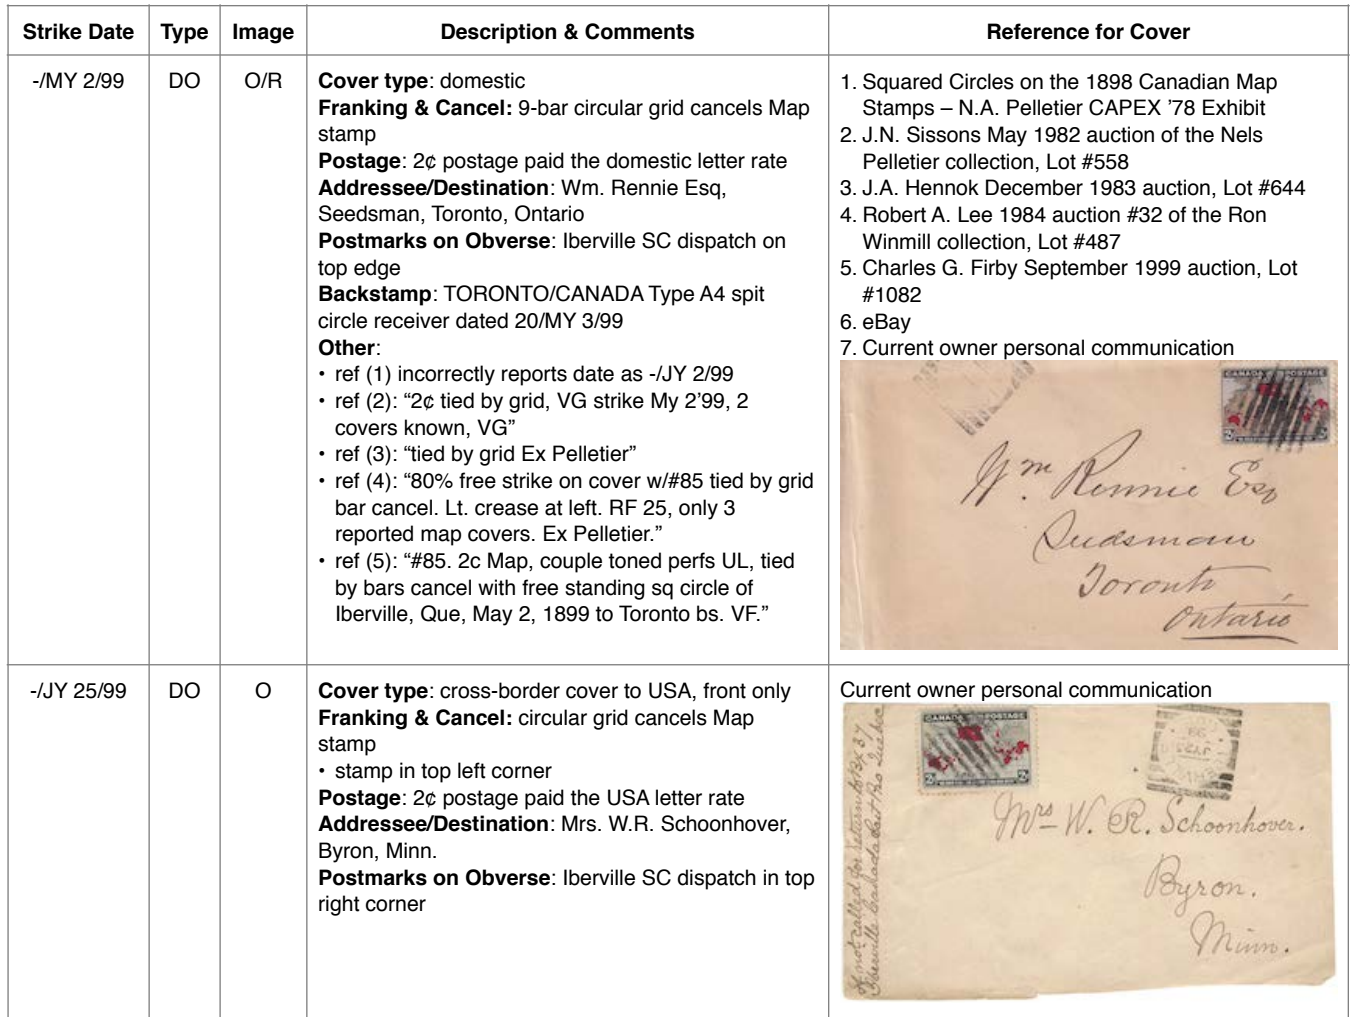 Strike Date Type Image Description & Comments Reference for Cover
-/MY 2/99 DO O/R
Cover type: domestic
Franking & Cancel: 9-bar circular grid cancels Map
stamp
Postage: 2¢ postage paid the domestic letter rate
Addressee/Destination: Wm. Rennie Esq,
Seedsman, Toronto, Ontario
Postmarks on Obverse: Iberville SC dispatch on
top edge
Backstamp: TORONTO/CANADA Type A4 spit
circle receiver dated 20/MY 3/99
Other:
• ref (1) incorrectly reports date as -/JY 2/99
• ref (2): “2¢ tied by grid, VG strike My 2’99, 2
covers known, VG”
• ref (3): “tied by grid Ex Pelletier”
• ref (4): “80% free strike on cover w/#85 tied by grid
bar cancel. Lt. crease at left. RF 25, only 3
reported map covers. Ex Pelletier.”
• ref (5): “#85. 2c Map, couple toned perfs UL, tied
by bars cancel with free standing sq circle of
Iberville, Que, May 2, 1899 to Toronto bs. VF.”
1. Squared Circles on the 1898 Canadian Map
Stamps – N.A. Pelletier CAPEX ’78 Exhibit
2. J.N. Sissons May 1982 auction of the Nels
Pelletier collection, Lot #558
3. J.A. Hennok December 1983 auction, Lot #644
4. Robert A. Lee 1984 auction #32 of the Ron
Winmill collection, Lot #487
5. Charles G. Firby September 1999 auction, Lot
#1082
6. eBay
7. Current owner personal communication
CANADA POSTAGE
Wm. Rennie Esq
Seedsman
Toronto
Ontario
-/JY 25/99 DO O
Cover type: cross-border cover to USA, front only
Franking & Cancel: circular grid cancels Map
stamp
• stamp in top left corner
Postage: 2¢ postage paid the USA letter rate
Addressee/Destination: Mrs. W.R. Schoonhover,
Byron, Minn.
Postmarks on Obverse: Iberville SC dispatch in top
right corner
Current owner personal communication
CANADA POSTAGE
If not called for return to Bx 37
Iberville Canada East Pro Quebec
Mrs W. R. Schoonhover.
Byron.
Minn.